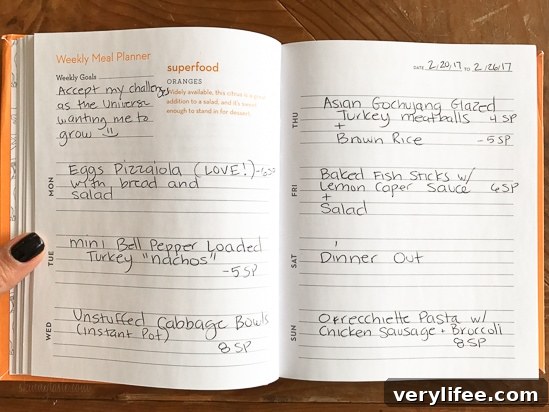 Weekly Meal Planner
Weekly Goals
Accept my challenges
as the Universe
wanting me to
grow
superfood
ORANGES
Widely available, this citrus is a great
addition to a salad, and it's sweet
enough to stand in for dessert.
MON
Eggs Pizzaiola (LOVE!)
with bread and
salad
TUE
mini Bell Pepper Loaded
Turkey "nachos"
-5SP
WED
Unstuffed Cabbage Bowls
(instant Pot)
8SP
DATE 2/20/17 TO 2/26/17
THU
Asian Gochujang Glazed
Turkey meatballs 4SP
+
Brown Rice -5SP
FRI
Baked Fish Sticks w/
Lemon Caper Sauce 6SP
+
Salad
SAT
Dinner Out
SUN
Orrecchiette Pasta w/
Chicken Sausage + Broccoli
8SP
verylifee.com